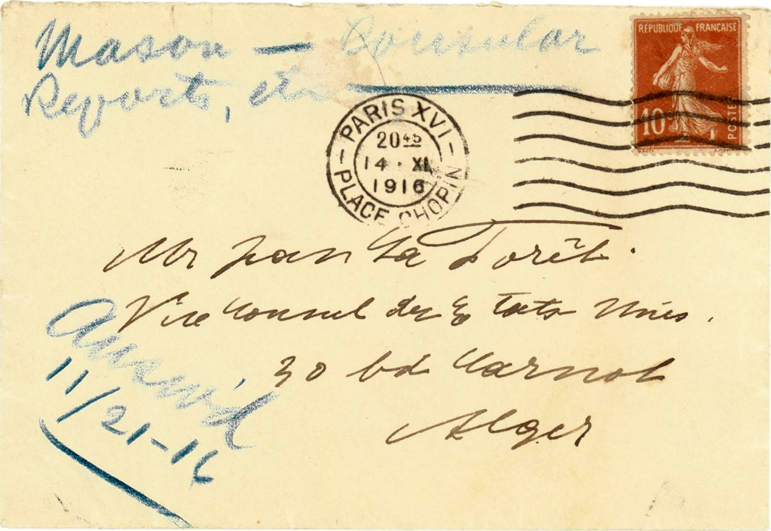 Mason — Consular
Reports, etc
RÉPUBLIQUE FRANÇAISE
10
POSTES
PARIS XVI
20 45
14 · XI
1916
PLACE CHOPIN
Mr Jean La Forêt.
Vice Consul des Etats Unis.
30 bd Carnot
Alger
Answ'd
11/21-16